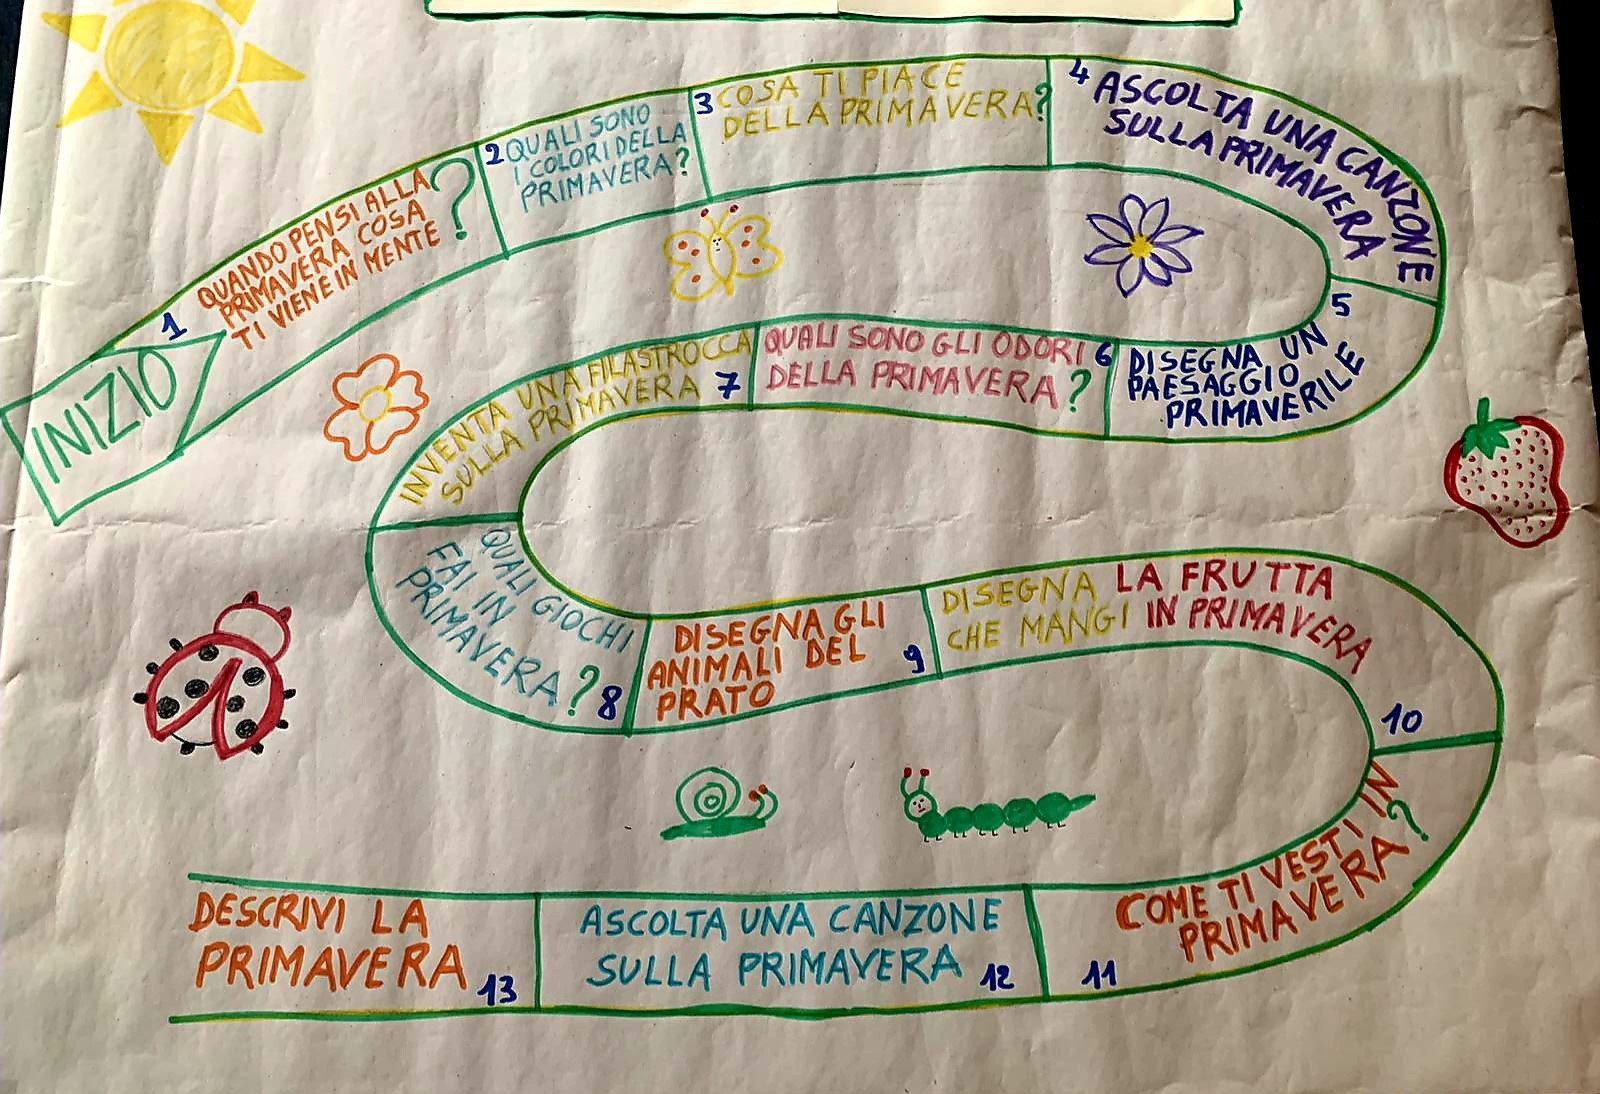 INIZIO
1
QUANDO PENSI ALLA
PRIMAVERA COSA
TI VIENE IN MENTE ?
2 QUALI SONO
I COLORI DELLA
PRIMAVERA?
3 COSA TI PIACE
DELLA PRIMAVERA?
4 ASCOLTA UNA CANZONE
SULLA PRIMAVERA
5
DISEGNA UN
PAESAGGIO
PRIMAVERILE
QUALI SONO GLI ODORI 6
DELLA PRIMAVERA ?
INVENTA UNA FILASTROCCA
SULLA PRIMAVERA 7
QUALI GIOCHI
FAI IN
PRIMAVERA ? 8
DISEGNA GLI
ANIMALI DEL 9
PRATO
DISEGNA LA FRUTTA
CHE MANGI IN PRIMAVERA
10
COME TI VESTI IN
PRIMAVERA ?
11
ASCOLTA UNA CANZONE
SULLA PRIMAVERA 12
DESCRIVI LA
PRIMAVERA 13